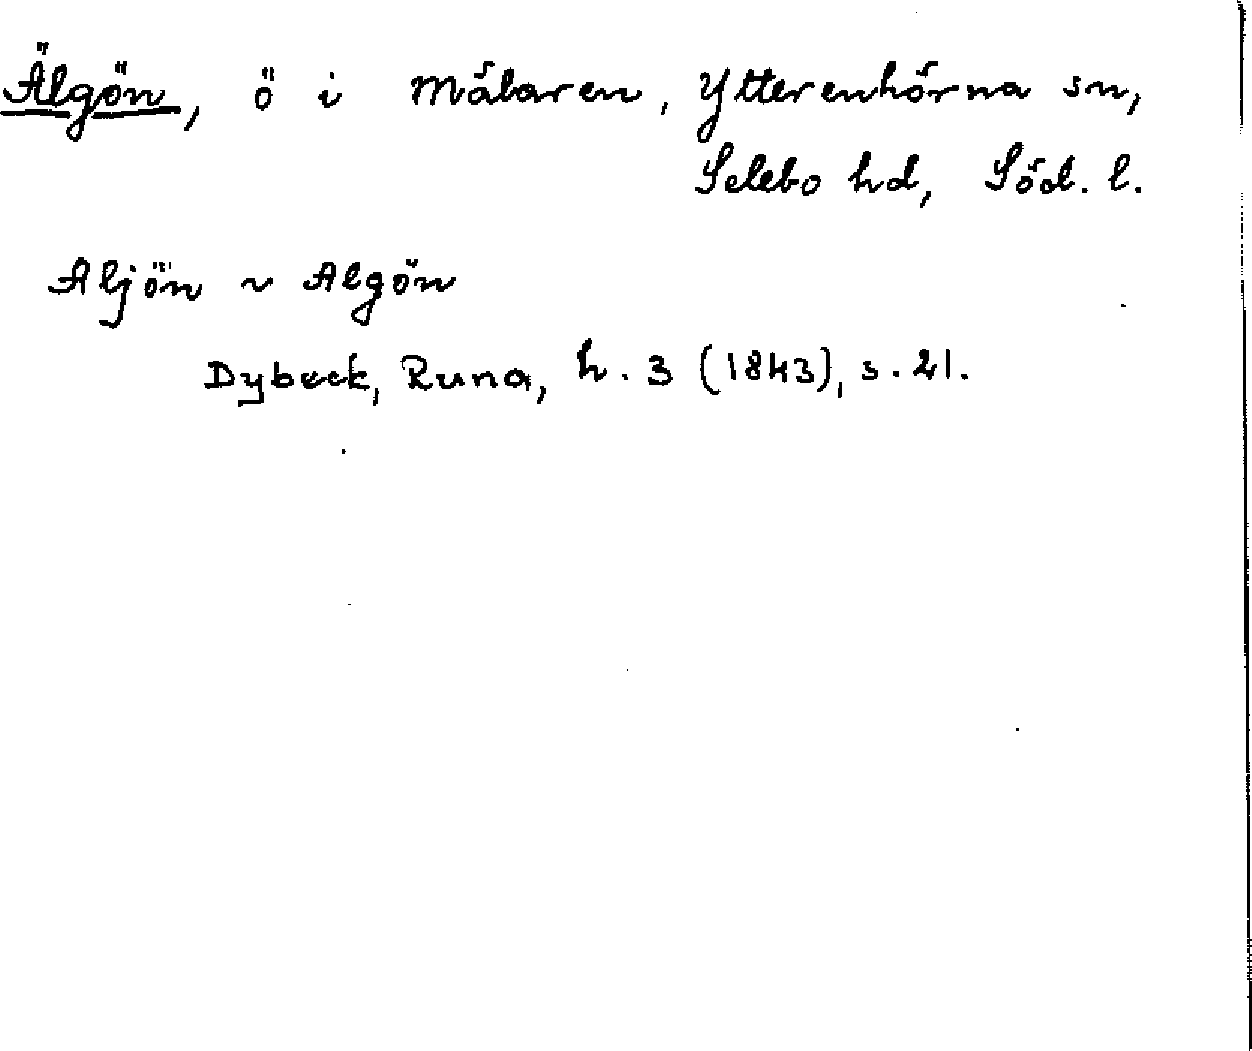 Älgön, ö i Mälaren, Ytterenhörna sn,
Selebo hd, Söd. l.
Aljön ~ Algön
Dybeck, Runa, h. 3 (1843), s. 21.